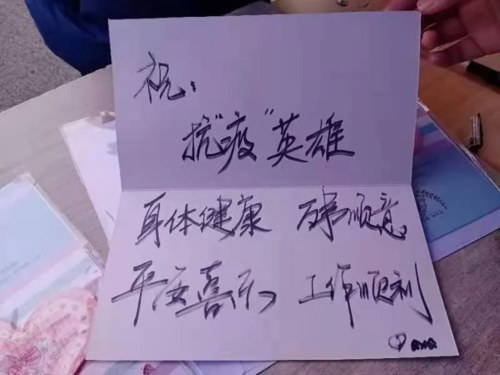 祝:
抗“疫”英雄
身体健康 万事顺意
平安喜乐 工作顺利